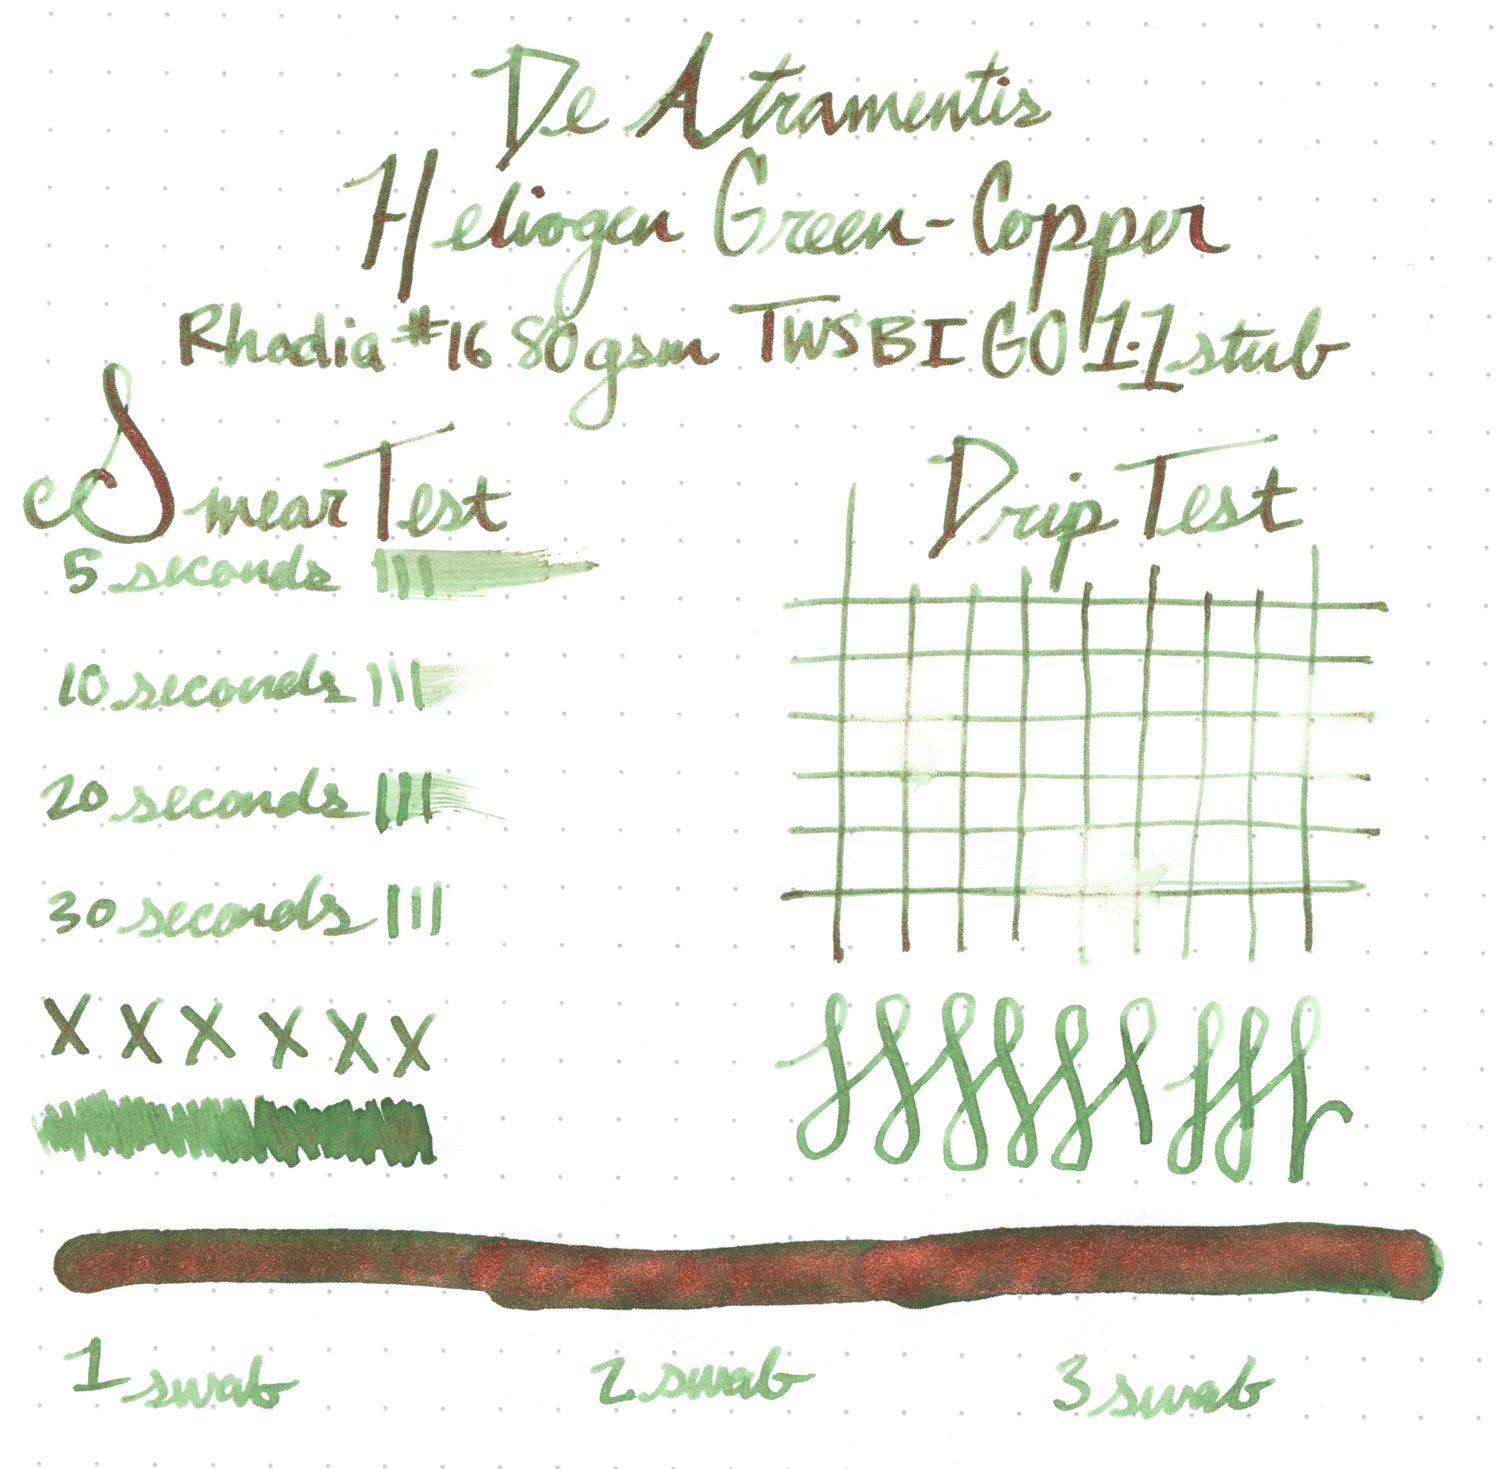 De Atramentis
Heliogen Green-Copper
Rhodia #16 80gsm TWSBI GO 1.1 stub
Smear Test
Drip Test
5 seconds
10 seconds
20 seconds
30 seconds
X X X X X X
1 swab
2 swab
3 swab